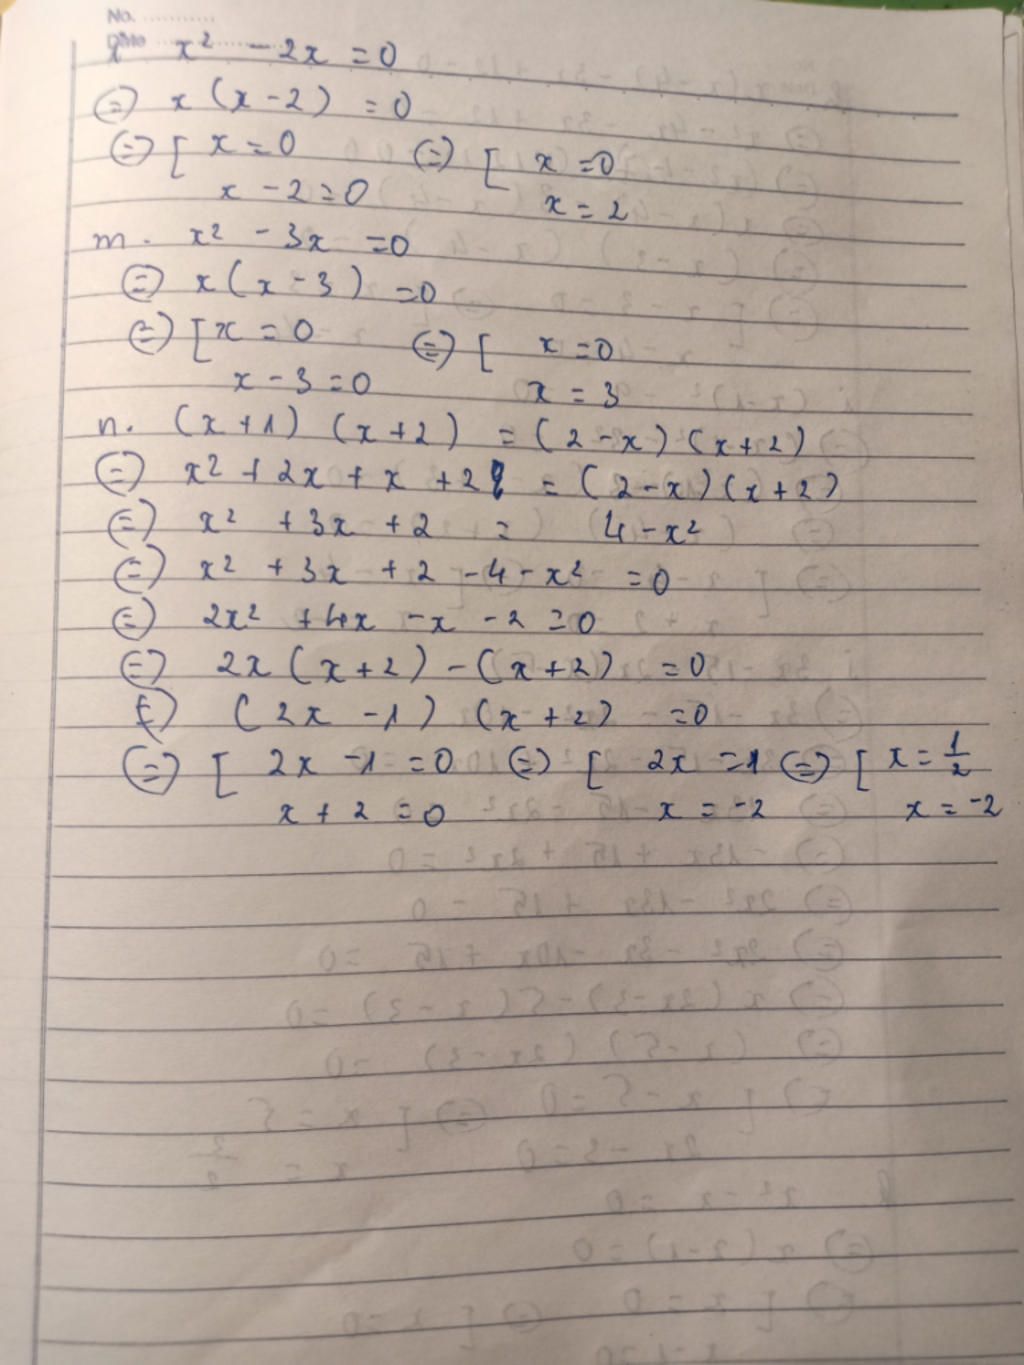 No. ............
Date ............
x² - 2x = 0
⇔ x(x-2) = 0
⇔ [ x = 0 ⇔ [ x = 0
x - 2 = 0 x = 2
m. x² - 3x = 0
⇔ x(x-3) = 0
⇔ [ x = 0 ⇔ [ x = 0
x - 3 = 0 x = 3
n. (x+1) (x+2) = (2-x) (x+2)
⇔ x² + 2x + x + 2 = (2-x) (x+2)
⇔ x² + 3x + 2 = 4 - x²
⇔ x² + 3x + 2 - 4 - x² = 0
⇔ 2x² + 4x - x - 2 = 0
⇔ 2x (x+2) - (x+2) = 0
⇔ (2x - 1) (x+2) = 0
⇔ [ 2x - 1 = 0 ⇔ [ 2x = 1 ⇔ [ x = 1/2
x + 2 = 0 x = -2 x = -2